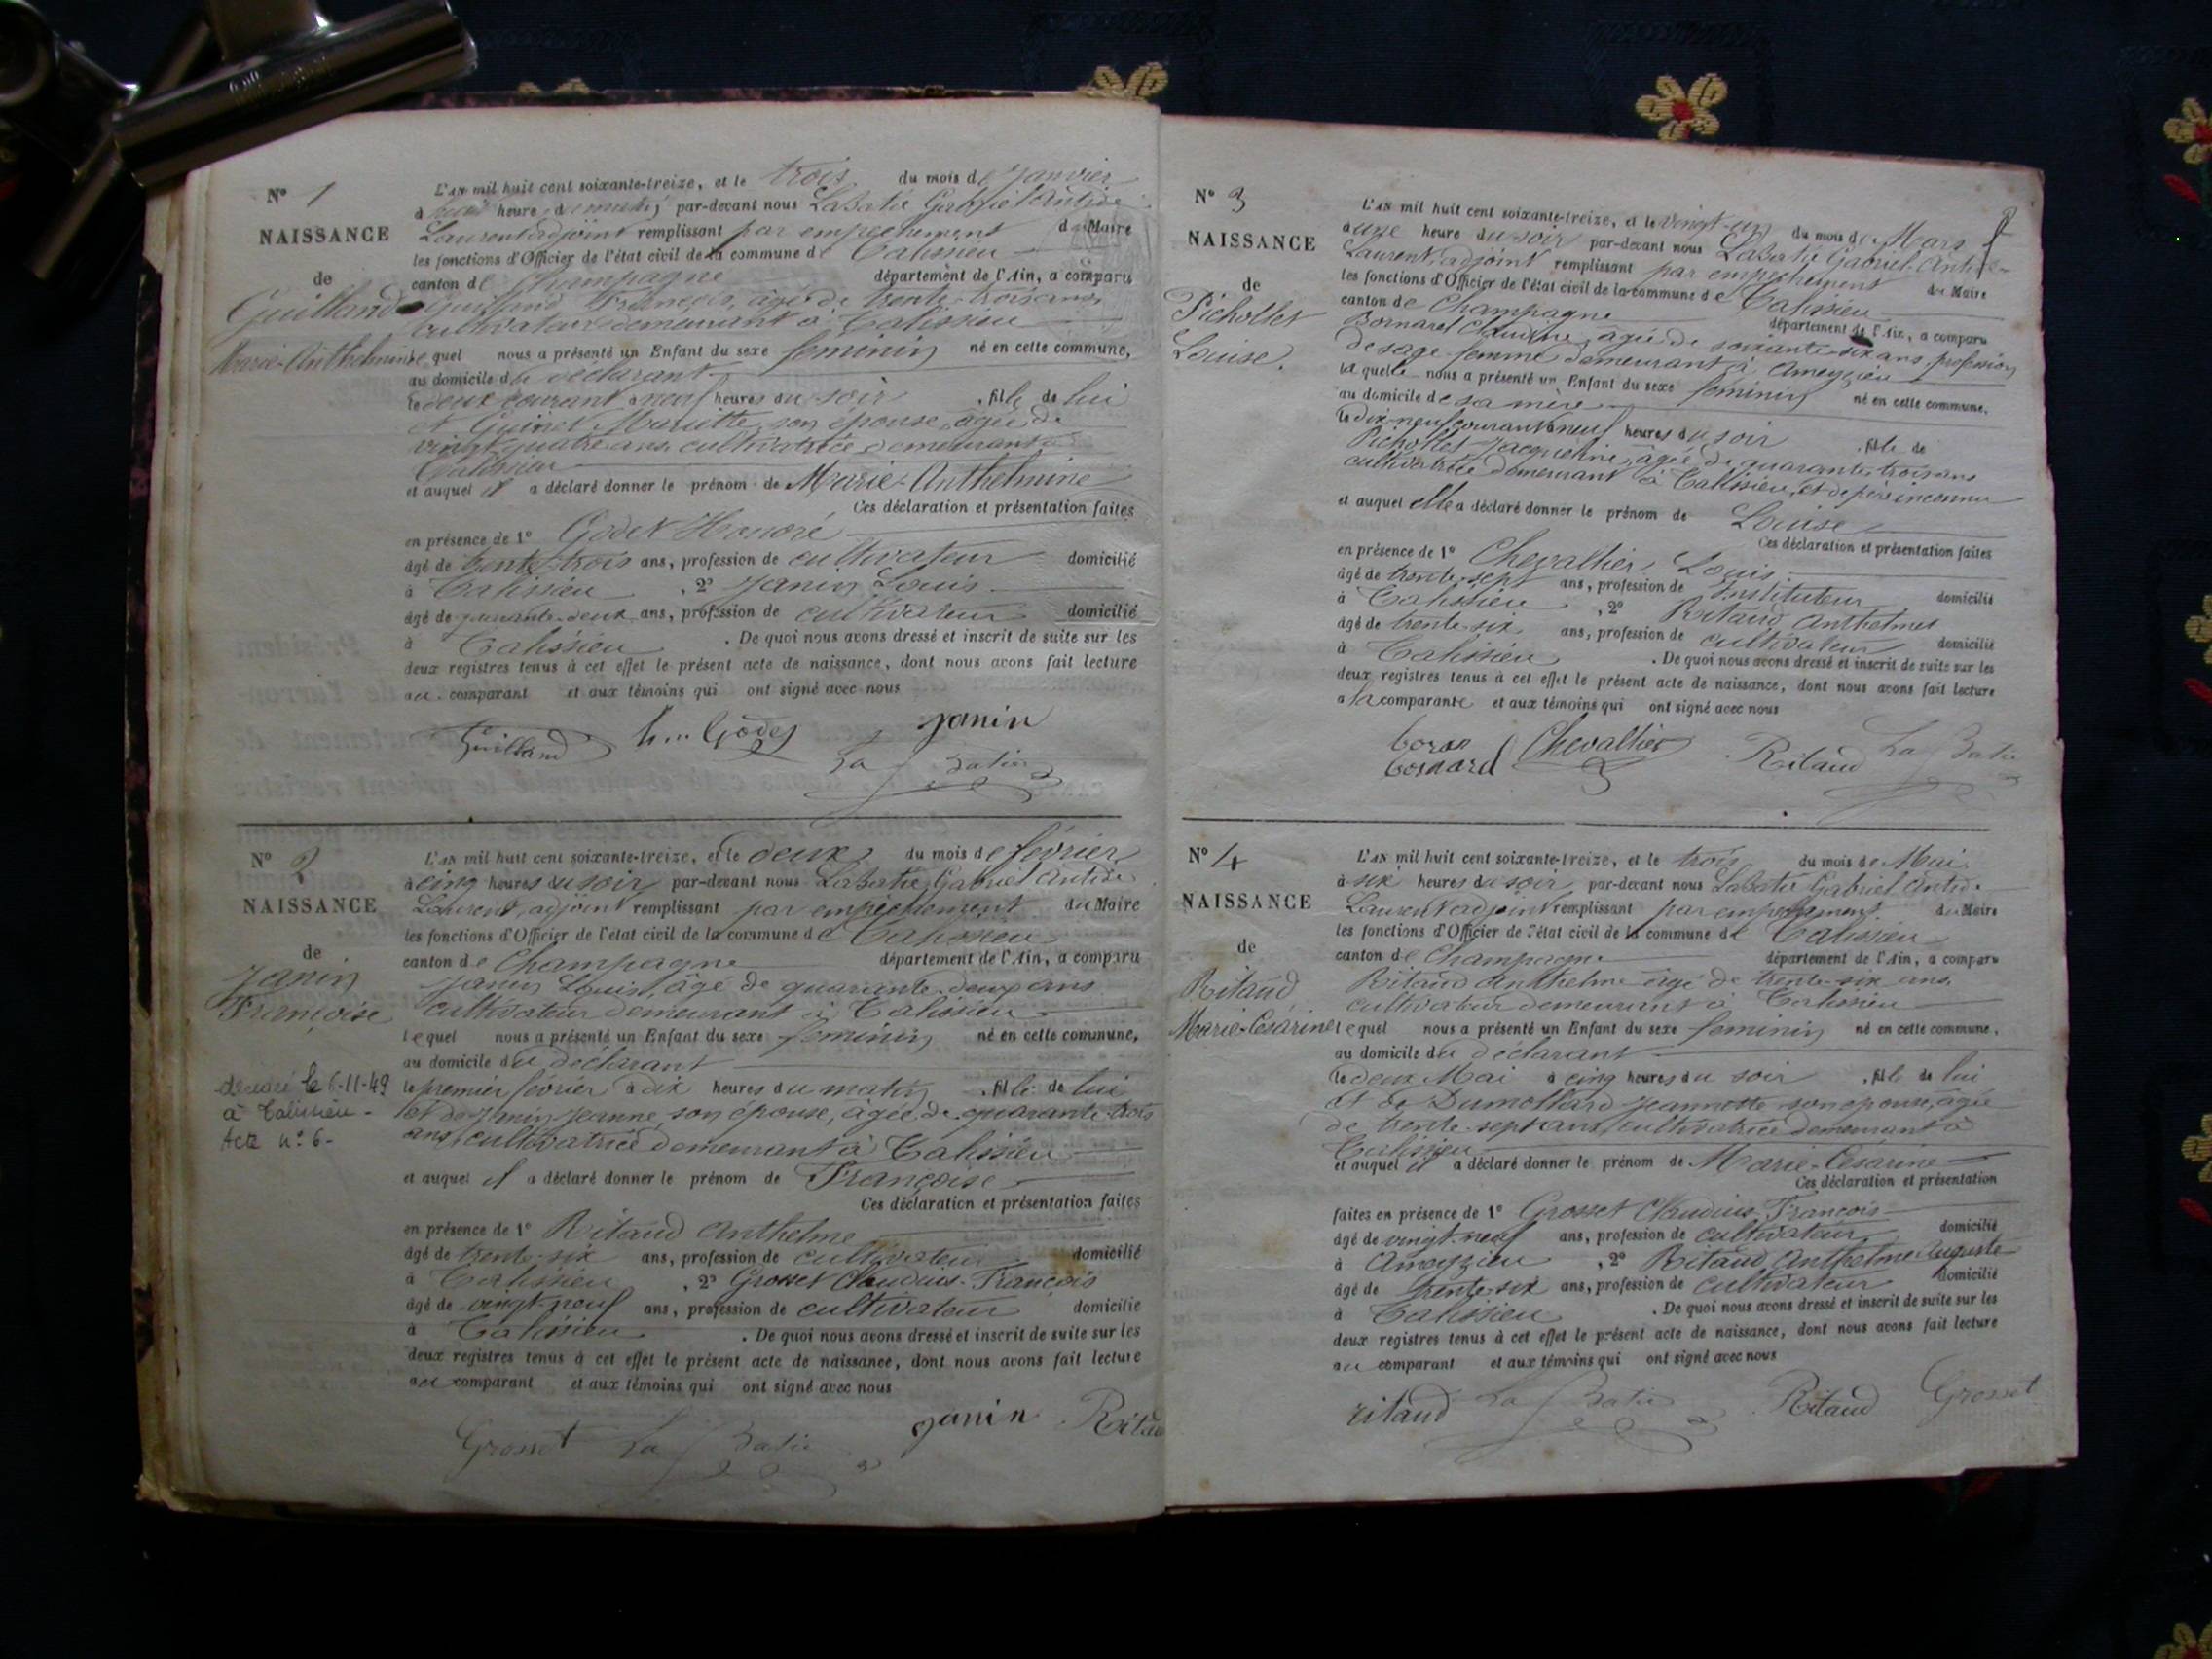 N° 1
NAISSANCE
de
Guilland
Marie-Anthelmine
L'AN mil huit cent soixante-treize, et le trois du mois de Janvier
à heure du matin par-devant nous LaBatie Gabriel Antide
Laurent adjoint remplissant par empêchement du Maire
les fonctions d'Officier de l'état civil de la commune de Talissieu
canton de Champagne département de l'Ain, a comparu
Guilland François, âgé de trente-trois ans,
cultivateur demeurant à Talissieu
lequel nous a présenté un Enfant du sexe féminin né en cette commune,
au domicile du déclarant
le deux courant à neuf heures du soir , fille de lui
et Guinet Mariette son épouse, âgée de
vingt quatre ans, cultivatrice demeurant à
Talissieu
et auquel il a déclaré donner le prénom de Marie-Anthelmine
Ces déclaration et présentation faites
en présence de 1° Godet Honoré
âgé de trente-trois ans, profession de cultivateur domicilié
à Talissieu , 2° Janin Louis
âgé de quarante-deux ans, profession de cultivateur domicilié
à Talissieu . De quoi nous avons dressé et inscrit de suite sur les
deux registres tenus à cet effet le présent acte de naissance, dont nous avons fait lecture
au comparant et aux témoins qui ont signé avec nous
Guilland h... Godet janin
La Batie
N° 2
NAISSANCE
de
Janin
Françoise
décédé le 6-11-49
à Talissieu -
Acte n° 6 -
L'AN mil huit cent soixante-treize, et le deux du mois de février
à cinq heures du soir par-devant nous LaBatie Gabriel Antide
Laurent, adjoint remplissant par empêchement du Maire
les fonctions d'Officier de l'état civil de la commune de Talissieu
canton de Champagne département de l'Ain, a comparu
Janin Louis, âgé de quarante-deux ans
cultivateur demeurant à Talissieu
lequel nous a présenté un Enfant du sexe féminin né en cette commune,
au domicile du déclarant
le premier février à dix heures du matin , fille de lui
et de Janin Jeanne, son épouse, âgée de quarante-trois
ans, cultivatrice demeurant à Talissieu
et auquel il a déclaré donner le prénom de Françoise
Ces déclaration et présentation faites
en présence de 1° Ritaud Anthelme
âgé de trente-six ans, profession de cultivateur domicilié
à Talissieu , 2° Grosset Claudius-François
âgé de vingt-neuf ans, profession de cultivateur domicilié
à Talissieu . De quoi nous avons dressé et inscrit de suite sur les
deux registres tenus à cet effet le présent acte de naissance, dont nous avons fait lecture
au comparant et aux témoins qui ont signé avec nous
janin Ritau
Grosset La Batie
N° 3
NAISSANCE
de
Pichollet
Louise.
L'AN mil huit cent soixante-treize, et le vingt-un du mois de Mars
à une heure du soir par-devant nous LaBatie Gabriel-Antide-
Laurent, adjoint remplissant par empêchement du Maire
les fonctions d'Officier de l'état civil de la commune de Talissieu
canton de Champagne département de l'Ain, a comparu
Bornard Claudine, âgée de soixante-six ans, profession
de sage-femme demeurant à Ameyzieu
laquelle nous a présenté un Enfant du sexe féminin né en cette commune,
au domicile de sa mère
le dix-neuf courant à neuf heures du soir , fille de
Pichollet Jacqueline, âgée de quarante-trois ans
cultivatrice demeurant à Talissieu, et de père inconnu
et auquel elle a déclaré donner le prénom de Louise
Ces déclaration et présentation faites
en présence de 1° Chevallier Louis
âgé de trente-sept ans, profession de Instituteur domicilié
à Talissieu , 2° Ritaud Anthelme
âgé de trente-six ans, profession de cultivateur domicilié
à Talissieu . De quoi nous avons dressé et inscrit de suite sur les
deux registres tenus à cet effet le présent acte de naissance, dont nous avons fait lecture
a la comparante et aux témoins qui ont signé avec nous
Chevallier Ritaud La Batie
bornard
N° 4
NAISSANCE
de
Ritaud
Marie-Césarine
L'AN mil huit cent soixante-treize, et le trois du mois de Mai
à six heures du soir par-devant nous LaBatie Gabriel Antide
Laurent adjoint remplissant par empêchement du Maire
les fonctions d'Officier de l'état civil de la commune de Talissieu
canton de Champagne département de l'Ain, a comparu
Ritaud Anthelme âgé de trente-six ans,
cultivateur demeurant à Talissieu
lequel nous a présenté un Enfant du sexe féminin né en cette commune,
au domicile du déclarant
le deux Mai à cinq heures du soir , fille de lui
et de Dumollard Jeannette son épouse, âgée
de trente-sept ans, cultivatrice demeurant à
Talissieu
et auquel il a déclaré donner le prénom de Marie-Césarine
Ces déclaration et présentation
faites en présence de 1° Grosset Claudius-François
âgé de vingt-neuf ans, profession de cultivateur domicilié
à Ameyzieu , 2° Ritaud Anthelme Auguste
âgé de trente-six ans, profession de cultivateur domicilié
à Talissieu . De quoi nous avons dressé et inscrit de suite sur les
deux registres tenus à cet effet le présent acte de naissance, dont nous avons fait lecture
au comparant et aux témoins qui ont signé avec nous
ritaud La Batie Ritaud Grosset